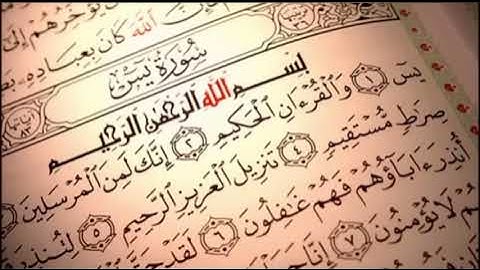 يُؤَخِّرُهُمْ إِلَىٰ
ٱللَّهَ كَانَ بِعِبَادِهِۦ
سُورَةُ يسٓ
بِسْمِ ٱللَّهِ ٱلرَّحْمَٰنِ ٱلرَّحِيمِ
يسٓ ١ وَٱلْقُرْءَانِ ٱلْحَكِيمِ ٢ إِنَّكَ لَمِنَ ٱلْمُرْسَلِينَ
صِرَٰطٍ مُّسْتَقِيمٍ ٤ تَنزِيلَ ٱلْعَزِيزِ ٱلرَّحِيمِ ٥ لِتُنذِرَ
أُنذِرَ ءَابَآؤُهُمْ فَهُمْ غَٰفِلُونَ ٦ لَقَدْ
لَا يُؤْمِنُونَ ٧ إِنَّا